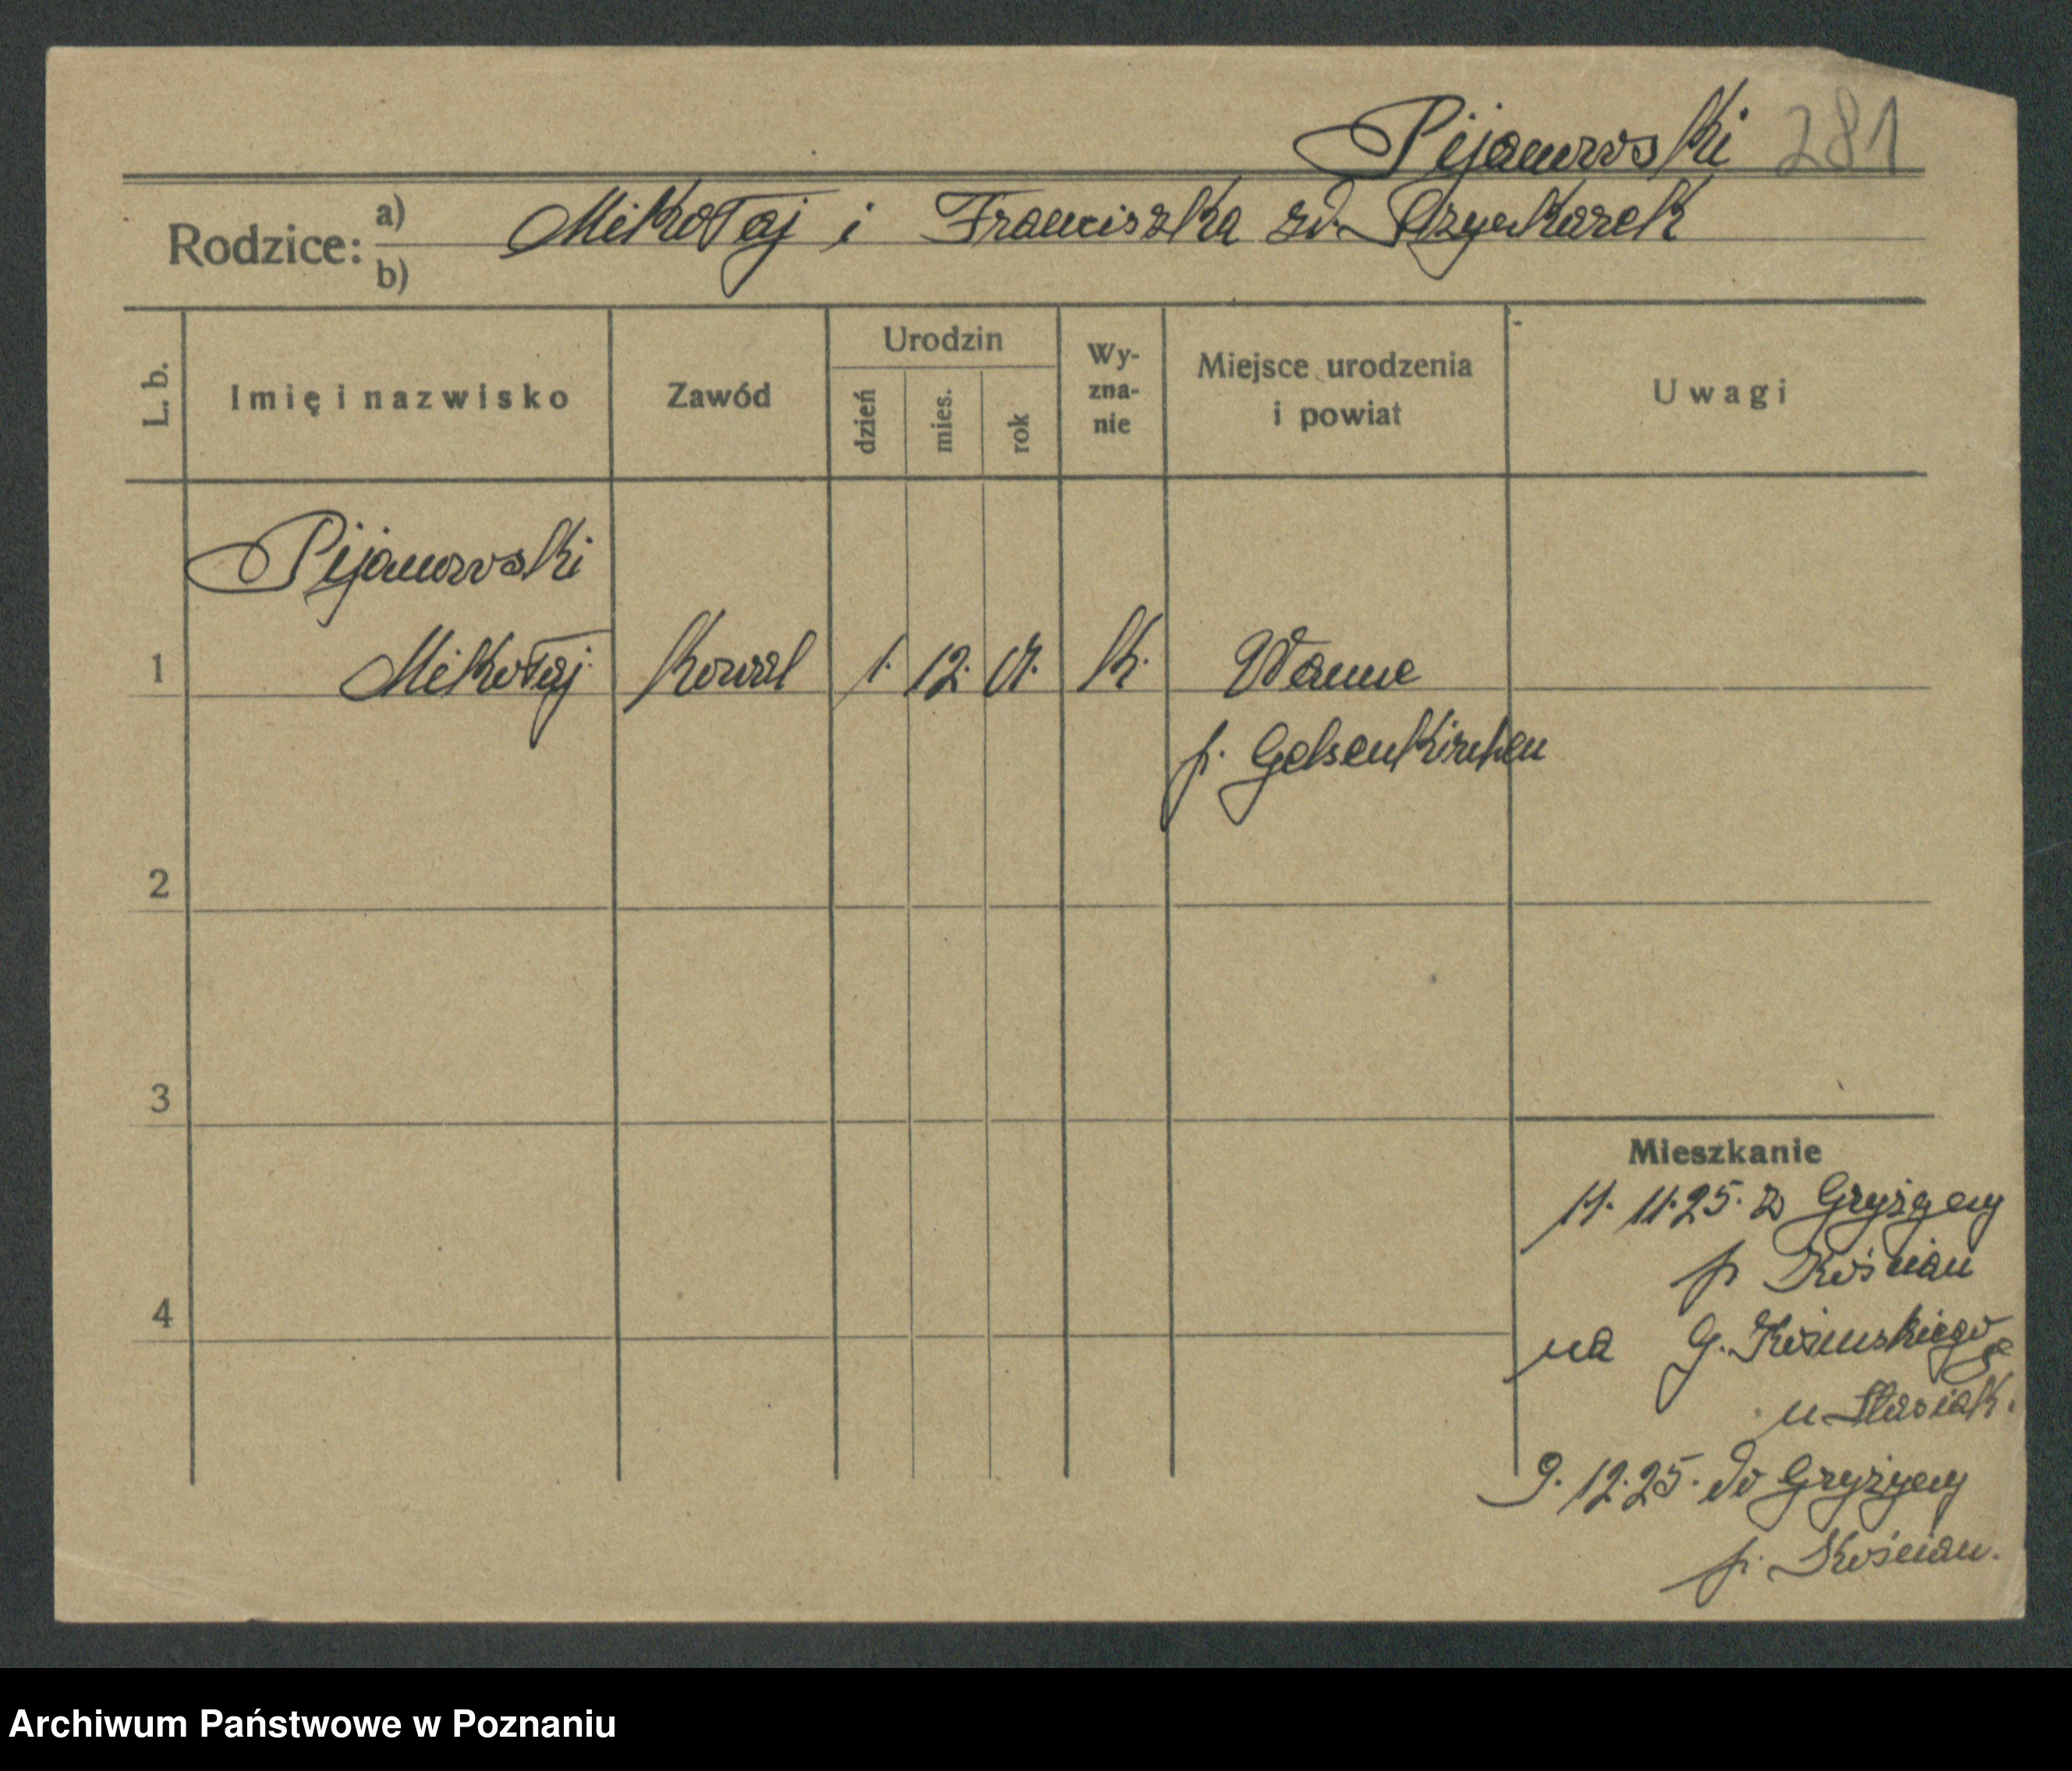 Pijanowski 281
Rodzice: a) Mikołaj i Franciszka zd.
b)
L. b.
Imię i nazwisko
Zawód
Urodzin
dzień
mies.
rok
Wy-
zna-
nie
Miejsce urodzenia
i powiat
Uwagi
Pijanowski
1 Mikołaj Kowal 1. 12. 01. k. Wanne
p. Gelsenkirchen
2
3
4
Mieszkanie
11. 11. 25. z Gryżyny
p. Kościan
na G.
u Stasiak.
9. 12. 25. do Gryżyny
p. Kościan.
Archiwum Państwowe w Poznaniu